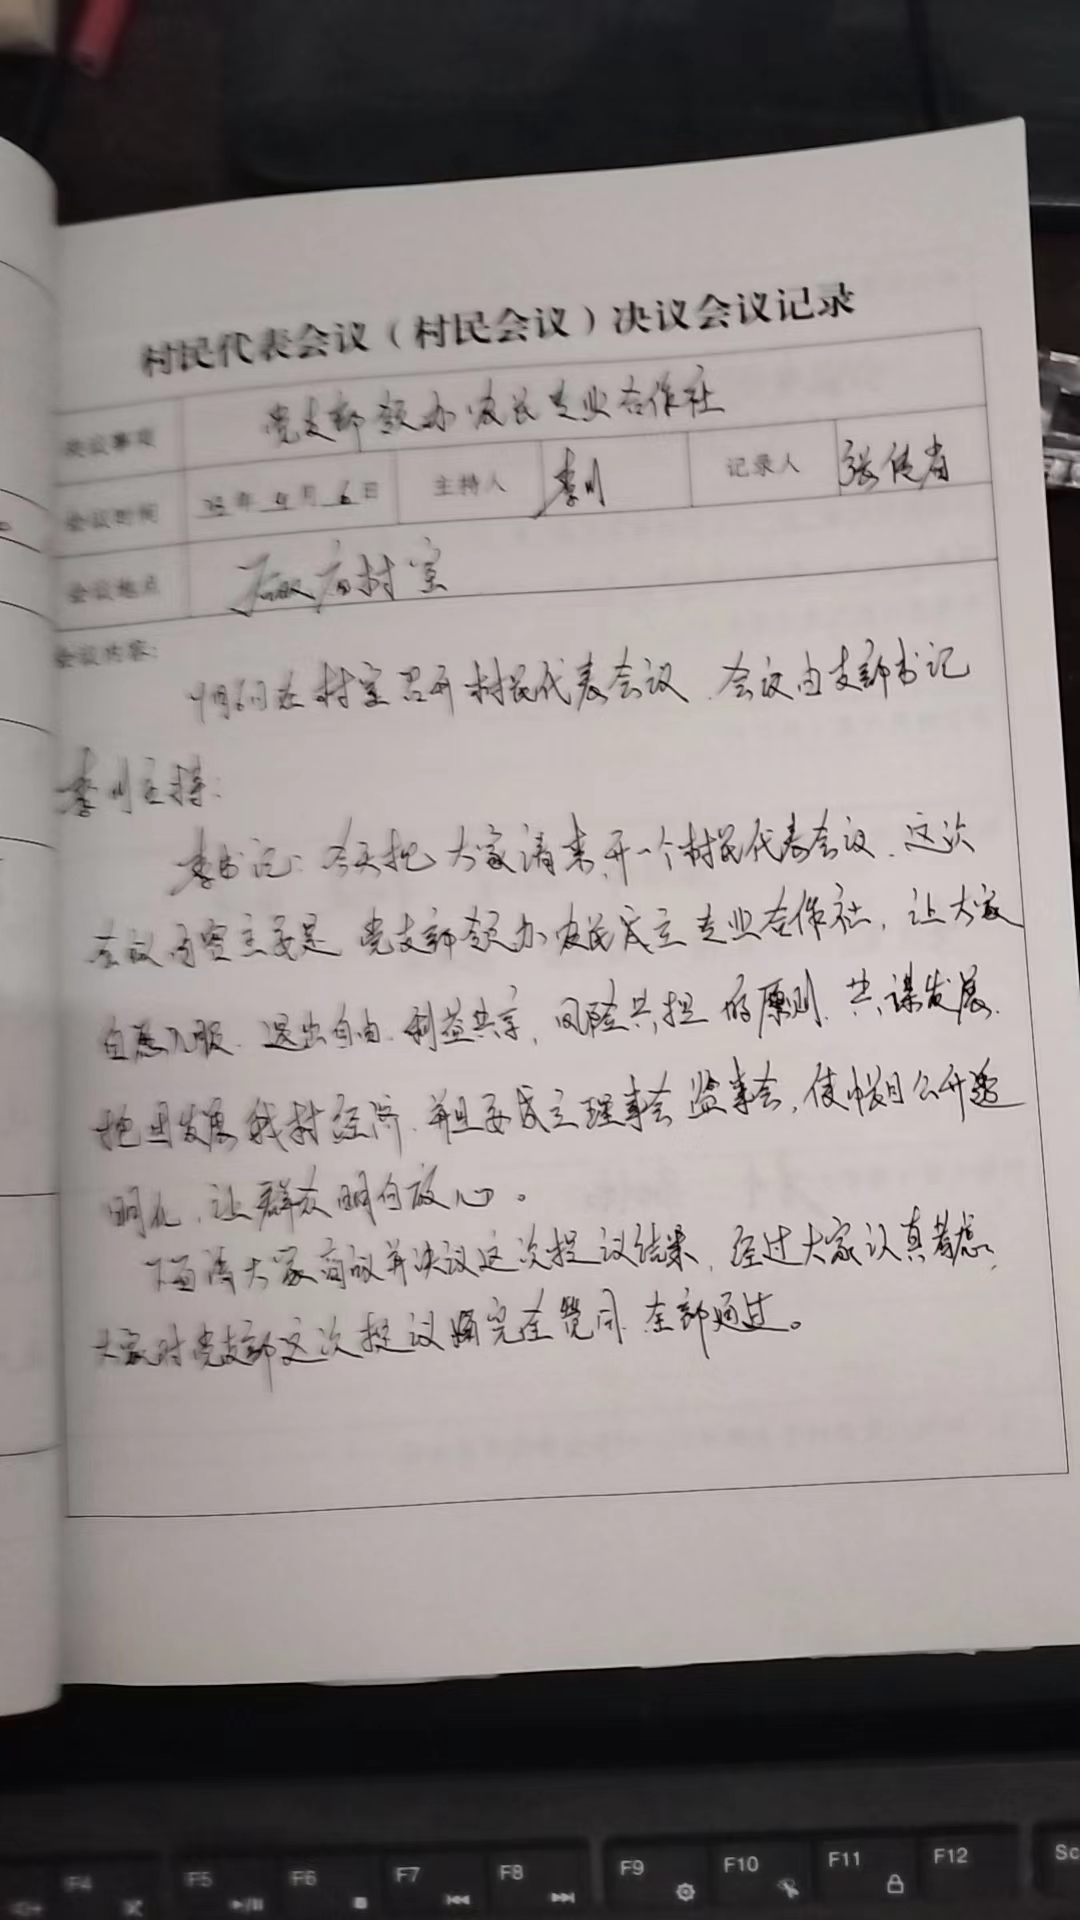 村民代表会议（村民会议）决议会议记录
决议事项 党支部领办农民专业合作社
会议时间 23年4月6日 主持人 李川 记录人 张传省
会议地点 庙村室
会议内容：
4月6日在村室召开村民代表会议、会议由支部书记
李川主持：
李书记：今天把大家请来开一个村民代表会议、这次
会议内容主要是党支部领办农民成立专业合作社，让大家
自愿入股、退出自由、利益共享，风险共担的原则、共谋发展、
发展我村经济、并且要成立理事会监事会，使帐目公开透
明化、让群众明白放心。
下面请大家商议并决议这次提议结果、经过大家认真考虑，
大家对党支部这次提议完全赞同、全部通过。
F4 F5 F6 F7 F8 F9 F10 F11 F12 Sc